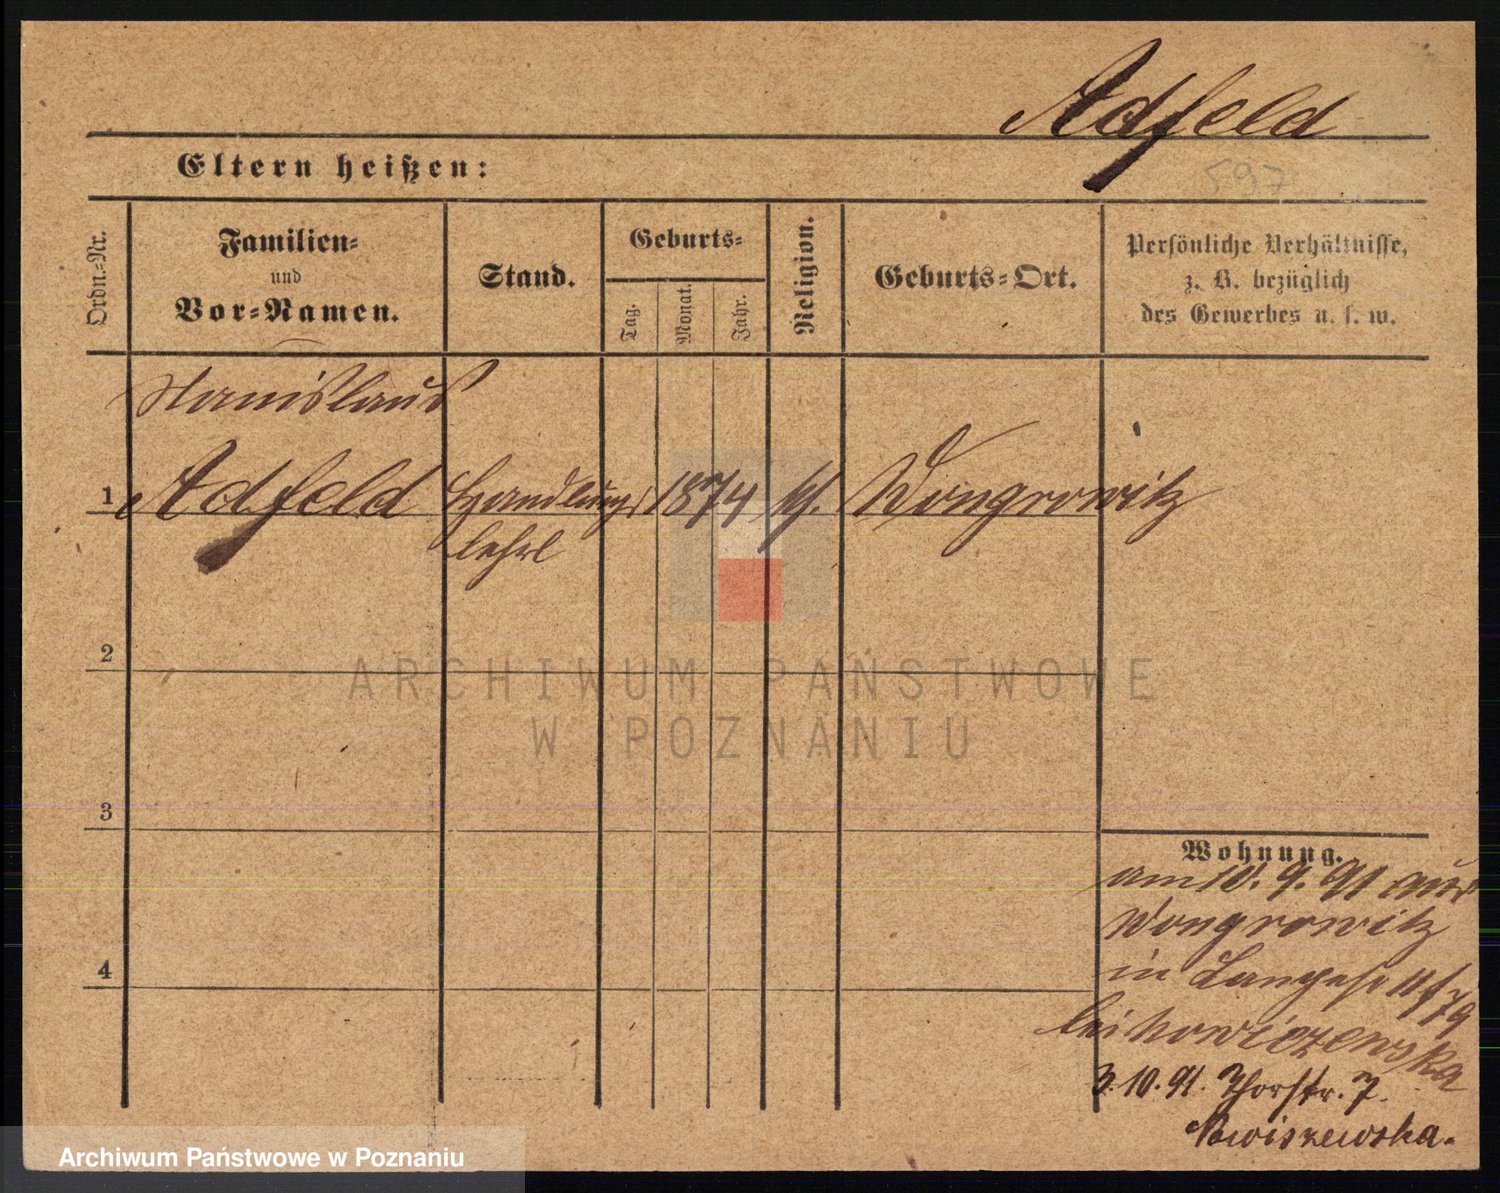 Adfeld
597
Eltern heißen:
Ordn.-Nr.
Familien-
und
Vor-Namen.
Stand.
Geburts-
Tag.
Monat.
Jahr.
Religion.
Geburts-Ort.
Persönliche Verhältnisse,
z. B. bezüglich
des Gewerbes u. s. w.
Stanislaus
1 Adfeld Handlungs 1874 kt. Wongrowitz
lehrl
2
3
4
ARCHIWUM PAŃSTWOWE
W POZNANIU
Wohnung.
am 10. 9. 91 aus
Wongrowitz
in Langestr 11/79
bei
3. 10. 91. Thorstr. 7.
Nowiszewska.
Archiwum Państwowe w Poznaniu